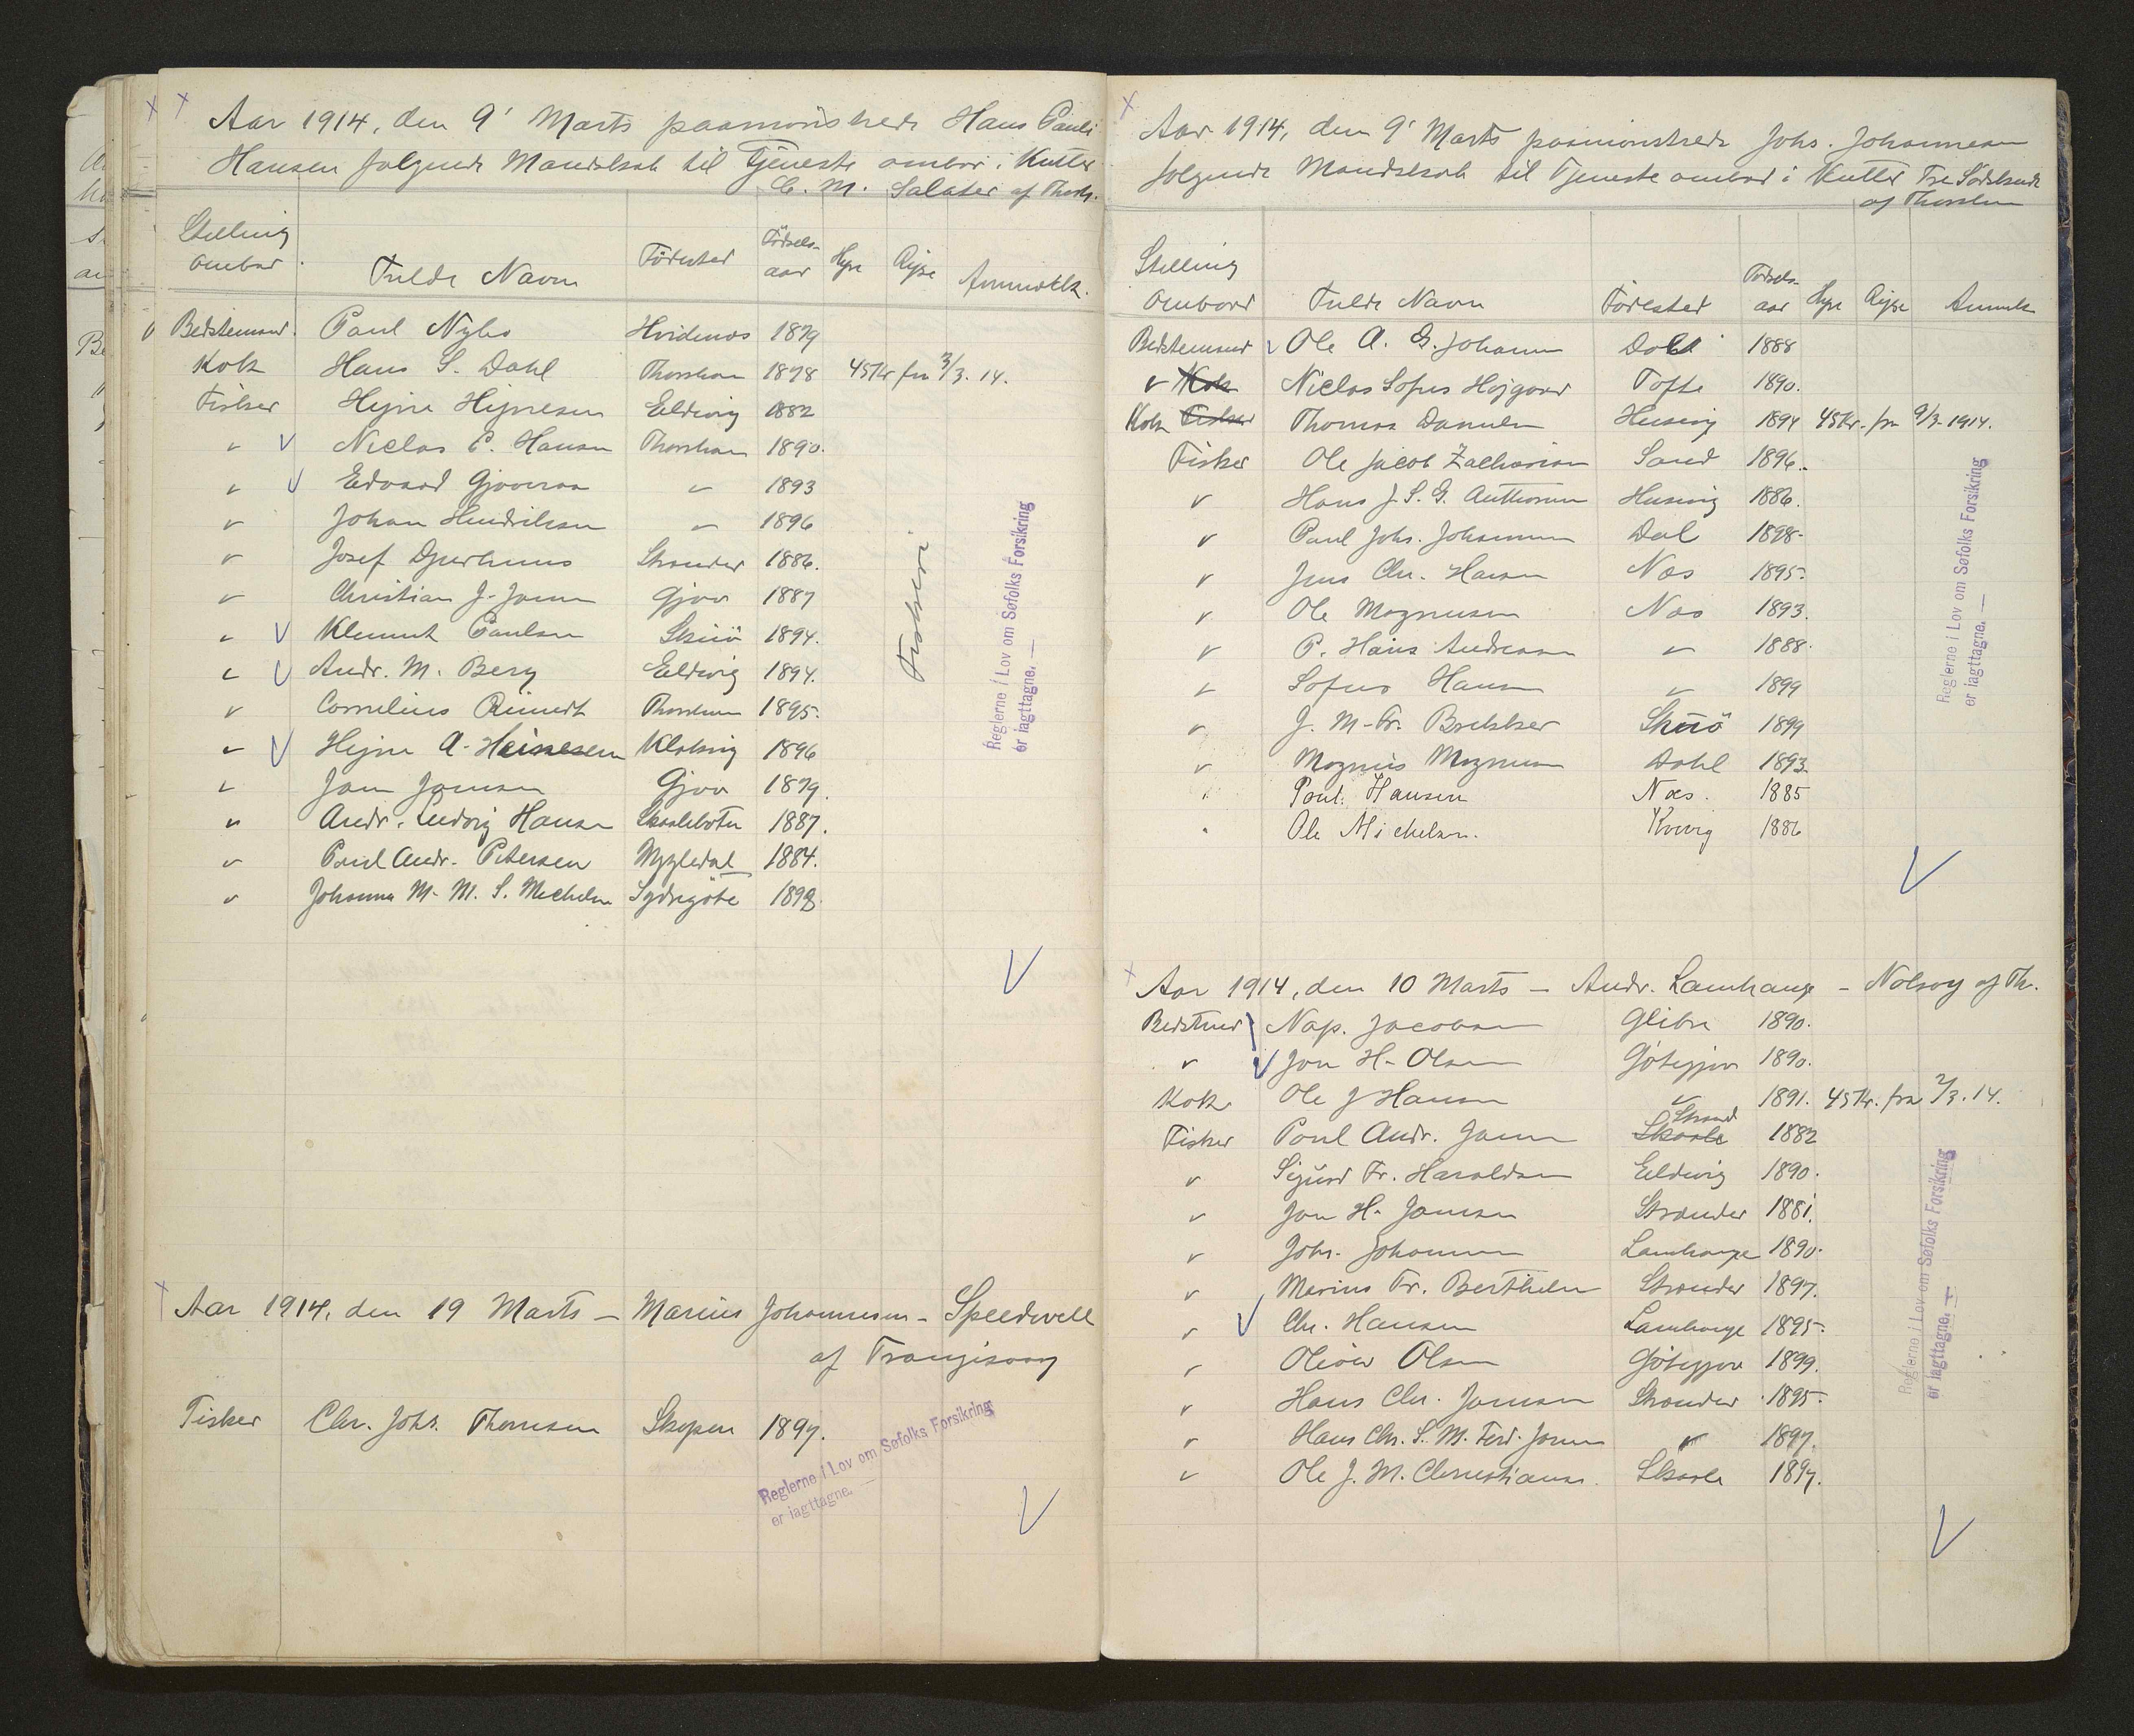 Aar 1914, den 9' Marts paamönstrede Hans Pauli
Hansen følgende Mandskab til Tjeneste ombor i Kutter
C. M. Salater af Thorsh.
Stilling ombor Fulde Navn Födested Födsels-aar Hyre Rejse Anmærk.
Bedstemand Paul Nybo Hvidenæs 1879
Kok Hans S. Dahl Thorshavn 1878 45 Kr fra 3/3. 14.
Fisker Hejne Hejnesen Eldevig 1882
" Niclas C. Hansen Thorshavn 1890.
" Edvard Gjoveraa " 1893
" Johan Hendriksen " 1896
" Josef Djurhuus Strender 1886.
" Christian J. Joensen Gjov 1887
" Klement Poulsen Skuö 1894.
" Andr. M. Berg Eldevig 1894.
" Cornelius Reinert Thorshavn 1895.
" Hejne A. Heinesen Klaksvig 1896
" Joen Joensen Gjov 1879.
" Andr. Ludvig Hansen Skaalebotn 1887.
" Poul Andr. Petersen Mygledal 1884.
" Johannes M. M. S. Michelsen Sydregöte 1898
Fiskeri
Reglerne i Lov om Søfolks Forsikring
er iagttagne. —
Aar 1914, den 19 Marts — Marius Johannesen — Speedwell
af Trangisvaag
Fisker Chr. Johs. Thomsen Skopen 1897.
Reglerne i Lov om Søfolks Forsikring
er iagttagne. —
Aar 1914, den 9' Marts paamönstrede Johs. Johannesen
følgende Mandskab til Tjeneste ombor i Kutter Tre Sødskende
af Thorshavn
Stilling Ombord Fulde Navn Födested Födsels-aar Hyre Rejse Anmærk
Bedstemand Ole A. G. Johannesen Dahl 1888
" Kok Niclas Sofus Højgaard Tofte 1890.
Kok Fisker Thomas Danielsen Husevig 1894 45 Kr. fra 9/3. 1914.
Fisker Ole Jacob Zachariasen Sand 1896.
" Hans J. S. G. Anthonsen Husevig 1886.
" Paul Johs. Johannesen Dal 1898.
" Jens Chr. Hansen Næs 1895.
" Ole Magnusen Næs 1893.
" P. Hans Andreasen " 1888.
" Sofus Hansen " 1899
" J. M. Fr. Brekkser Skuö 1899
" Magnus Magnusen Dahl 1893
" Poul Hansen Næs. 1885
" Ole Michelsen. Kvivig 1886
Reglerne i Lov om Søfolks Forsikring
er iagttagne. —
Aar 1914, den 10 Marts — Andr. Lamhauge — Nolsøy af Th.
Bedstmd Nap. Jacobsen Glibre 1890.
" Jon H. Olsen Götegjov 1890.
Kok Ole J Hansen " 1891. 45 Kr. fra 2/3. 14.
Strand
Fisker Poul Andr. Joensen Skaale 1882
" Sigurd Fr. Haraldsen Eldevig 1890.
" Jon H. Joensen Strender 1881.
" Johs. Johannesen Lamhauge 1890.
" Marius Fr. Berthelsen Strender 1897.
" Chr. Hansen Lamhauge 1895.
" Oliver Olsen Götegjov 1899.
" Hans Chr. Joensen Strender 1895.
" Hans Chr. S. M. Ferd. Joensen " 1897.
" Ole J. M. Christiansen. Skaale 1897.
Reglerne i Lov om Søfolks Forsikring
er iagttagne. —